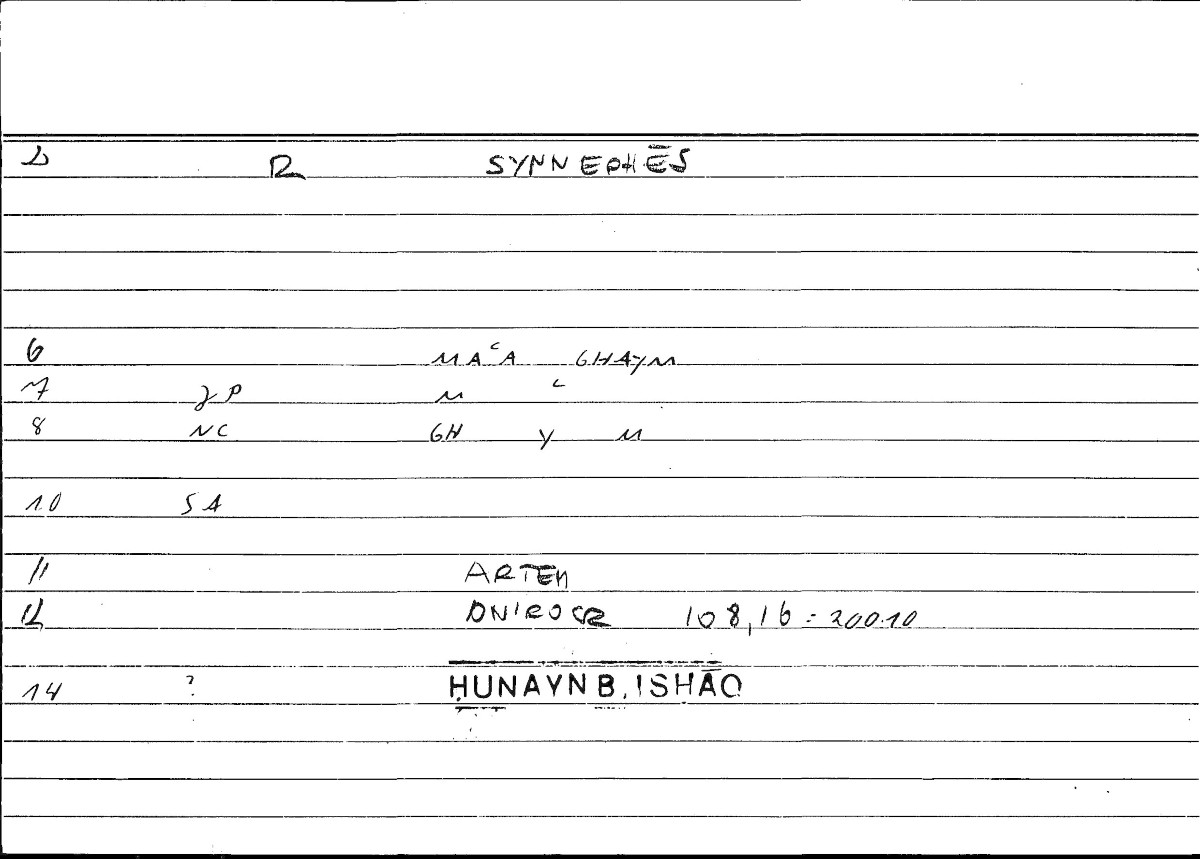 2 R SYNNEPHĒS
6 MAʿA GHAYM
7 ʿ
8 NC GH Y M
10 SA
11 ARTEM
12 ONIROCR 108,16 = 200.10
14 ? ḤUNAYN B. ISḤĀQ